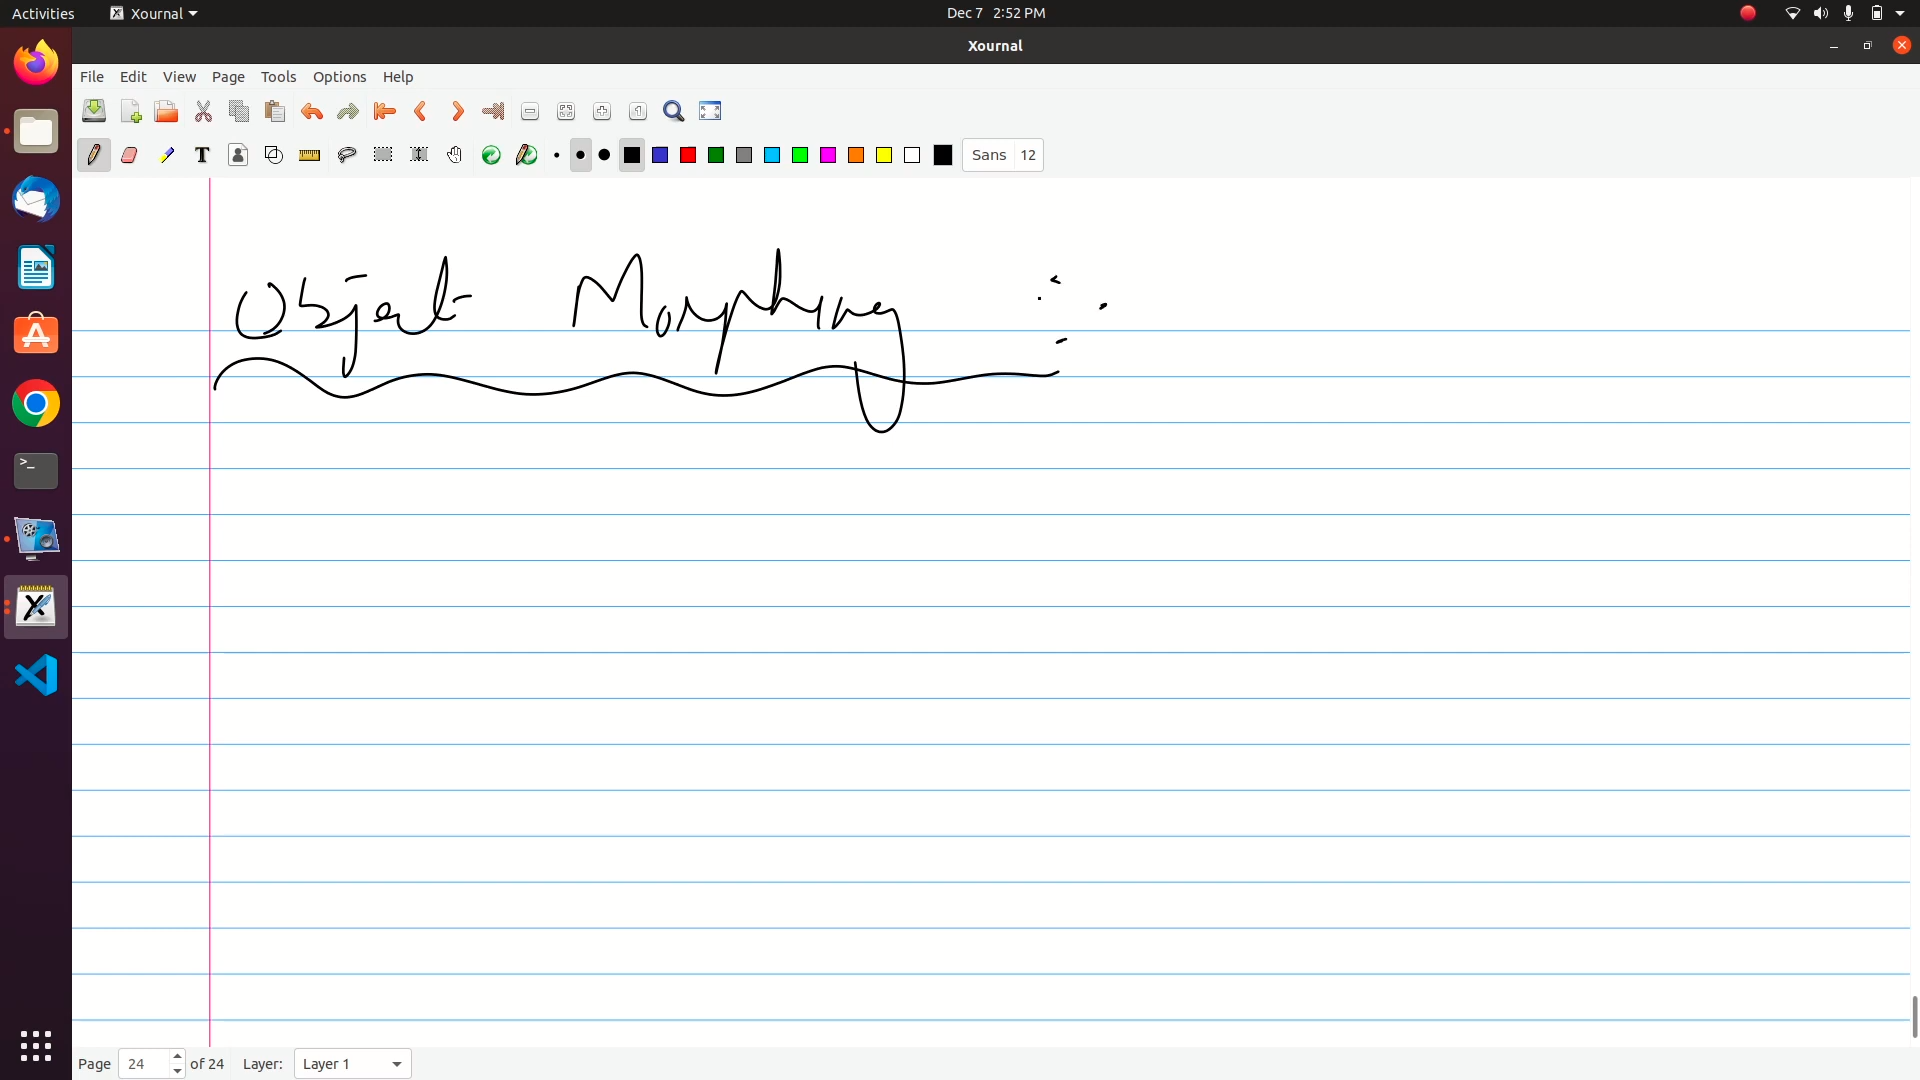 Activities Xournal Dec 7 2:52 PM
Xournal
File Edit View Page Tools Options Help
T Sans 12
Object Morphing :
Page 24 of 24 Layer: Layer 1